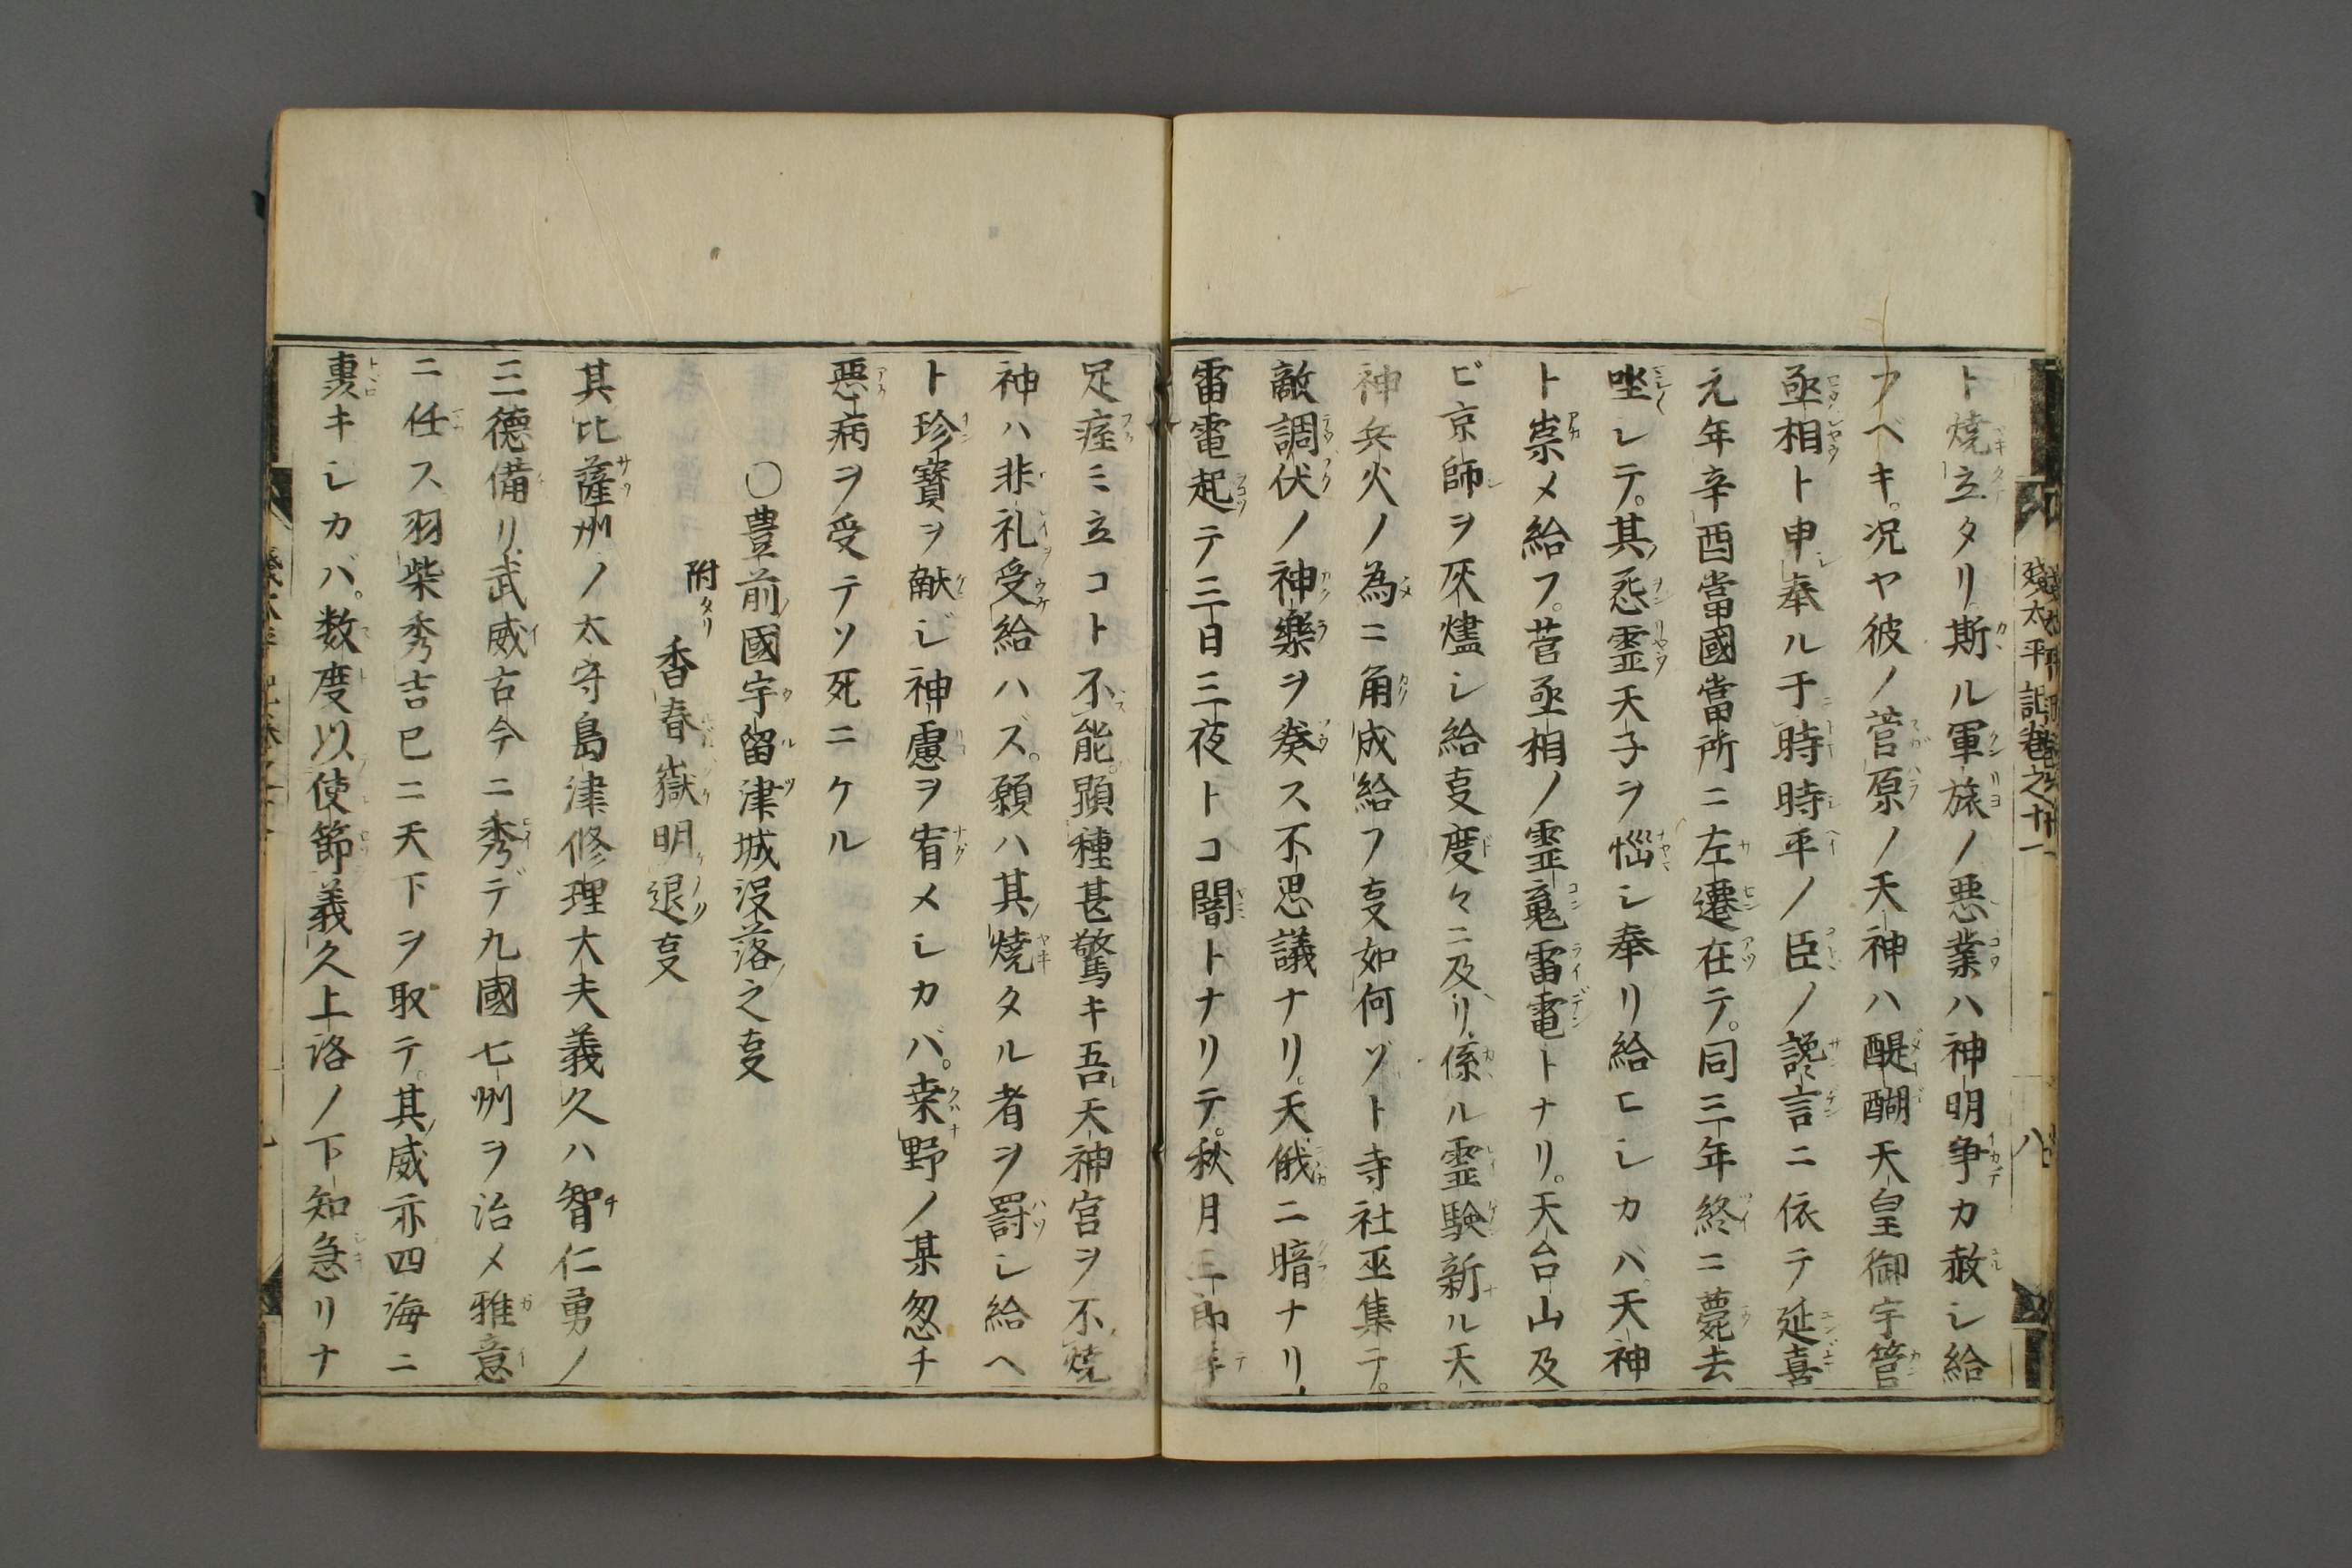 残太平記巻之十一
八
ト焼立タリ斯ル軍旅ノ悪業ハ神明争カ赦シ給
フベキ。况ヤ彼ノ菅原ノ天神ハ醍醐天皇御宇管
亟相ト申シ奉ル于時時平ノ臣ノ讒言ニ依テ延喜
元年辛酉當國當所ニ左遷在テ。同三年終ニ薨去
坐シテ。其ノ悉霊天子ヲ惱シ奉リ給ヒシカバ天神
ト崇メ給フ。菅亟相ノ霊䰟雷電トナリ。天台山及
ビ京師ヲ灰燼シ給㕝度々ニ及リ係ル霊験新ル天
神兵火ノ為ニ角成給フ㕝如何ゾト寺社巫集テ。
敵調伏ノ神樂ヲ奏ス不思議ナリ。天俄ニ暗ナリ
雷電起テ三日三夜トコ闇トナリテ。秋月三郎手
足痓ミ立コト不能。顕種甚驚キ吾天神宮ヲ不焼
神ハ非礼受給ハズ。願ハ其ノ焼タル者ヲ罰シ給ヘ
ト珍寳ヲ献ジ神慮ヲ宥メシカバ。桒野ノ某忽チ
悪病ヲ受テソ死ニケル
〇豊前國宇留津城没落之㕝
附タリ香春嶽明退㕝
其比薩州ノ太守島津修理大夫義久ハ智仁勇ノ
三德備リ武威古今ニ秀デ九國七州ヲ治メ雅意
ニ任ス羽柴秀吉已ニ天下ヲ取テ。其ノ威亦四海ニ
轟キシカバ。数度以使節義久上洛ノ下知急リナ